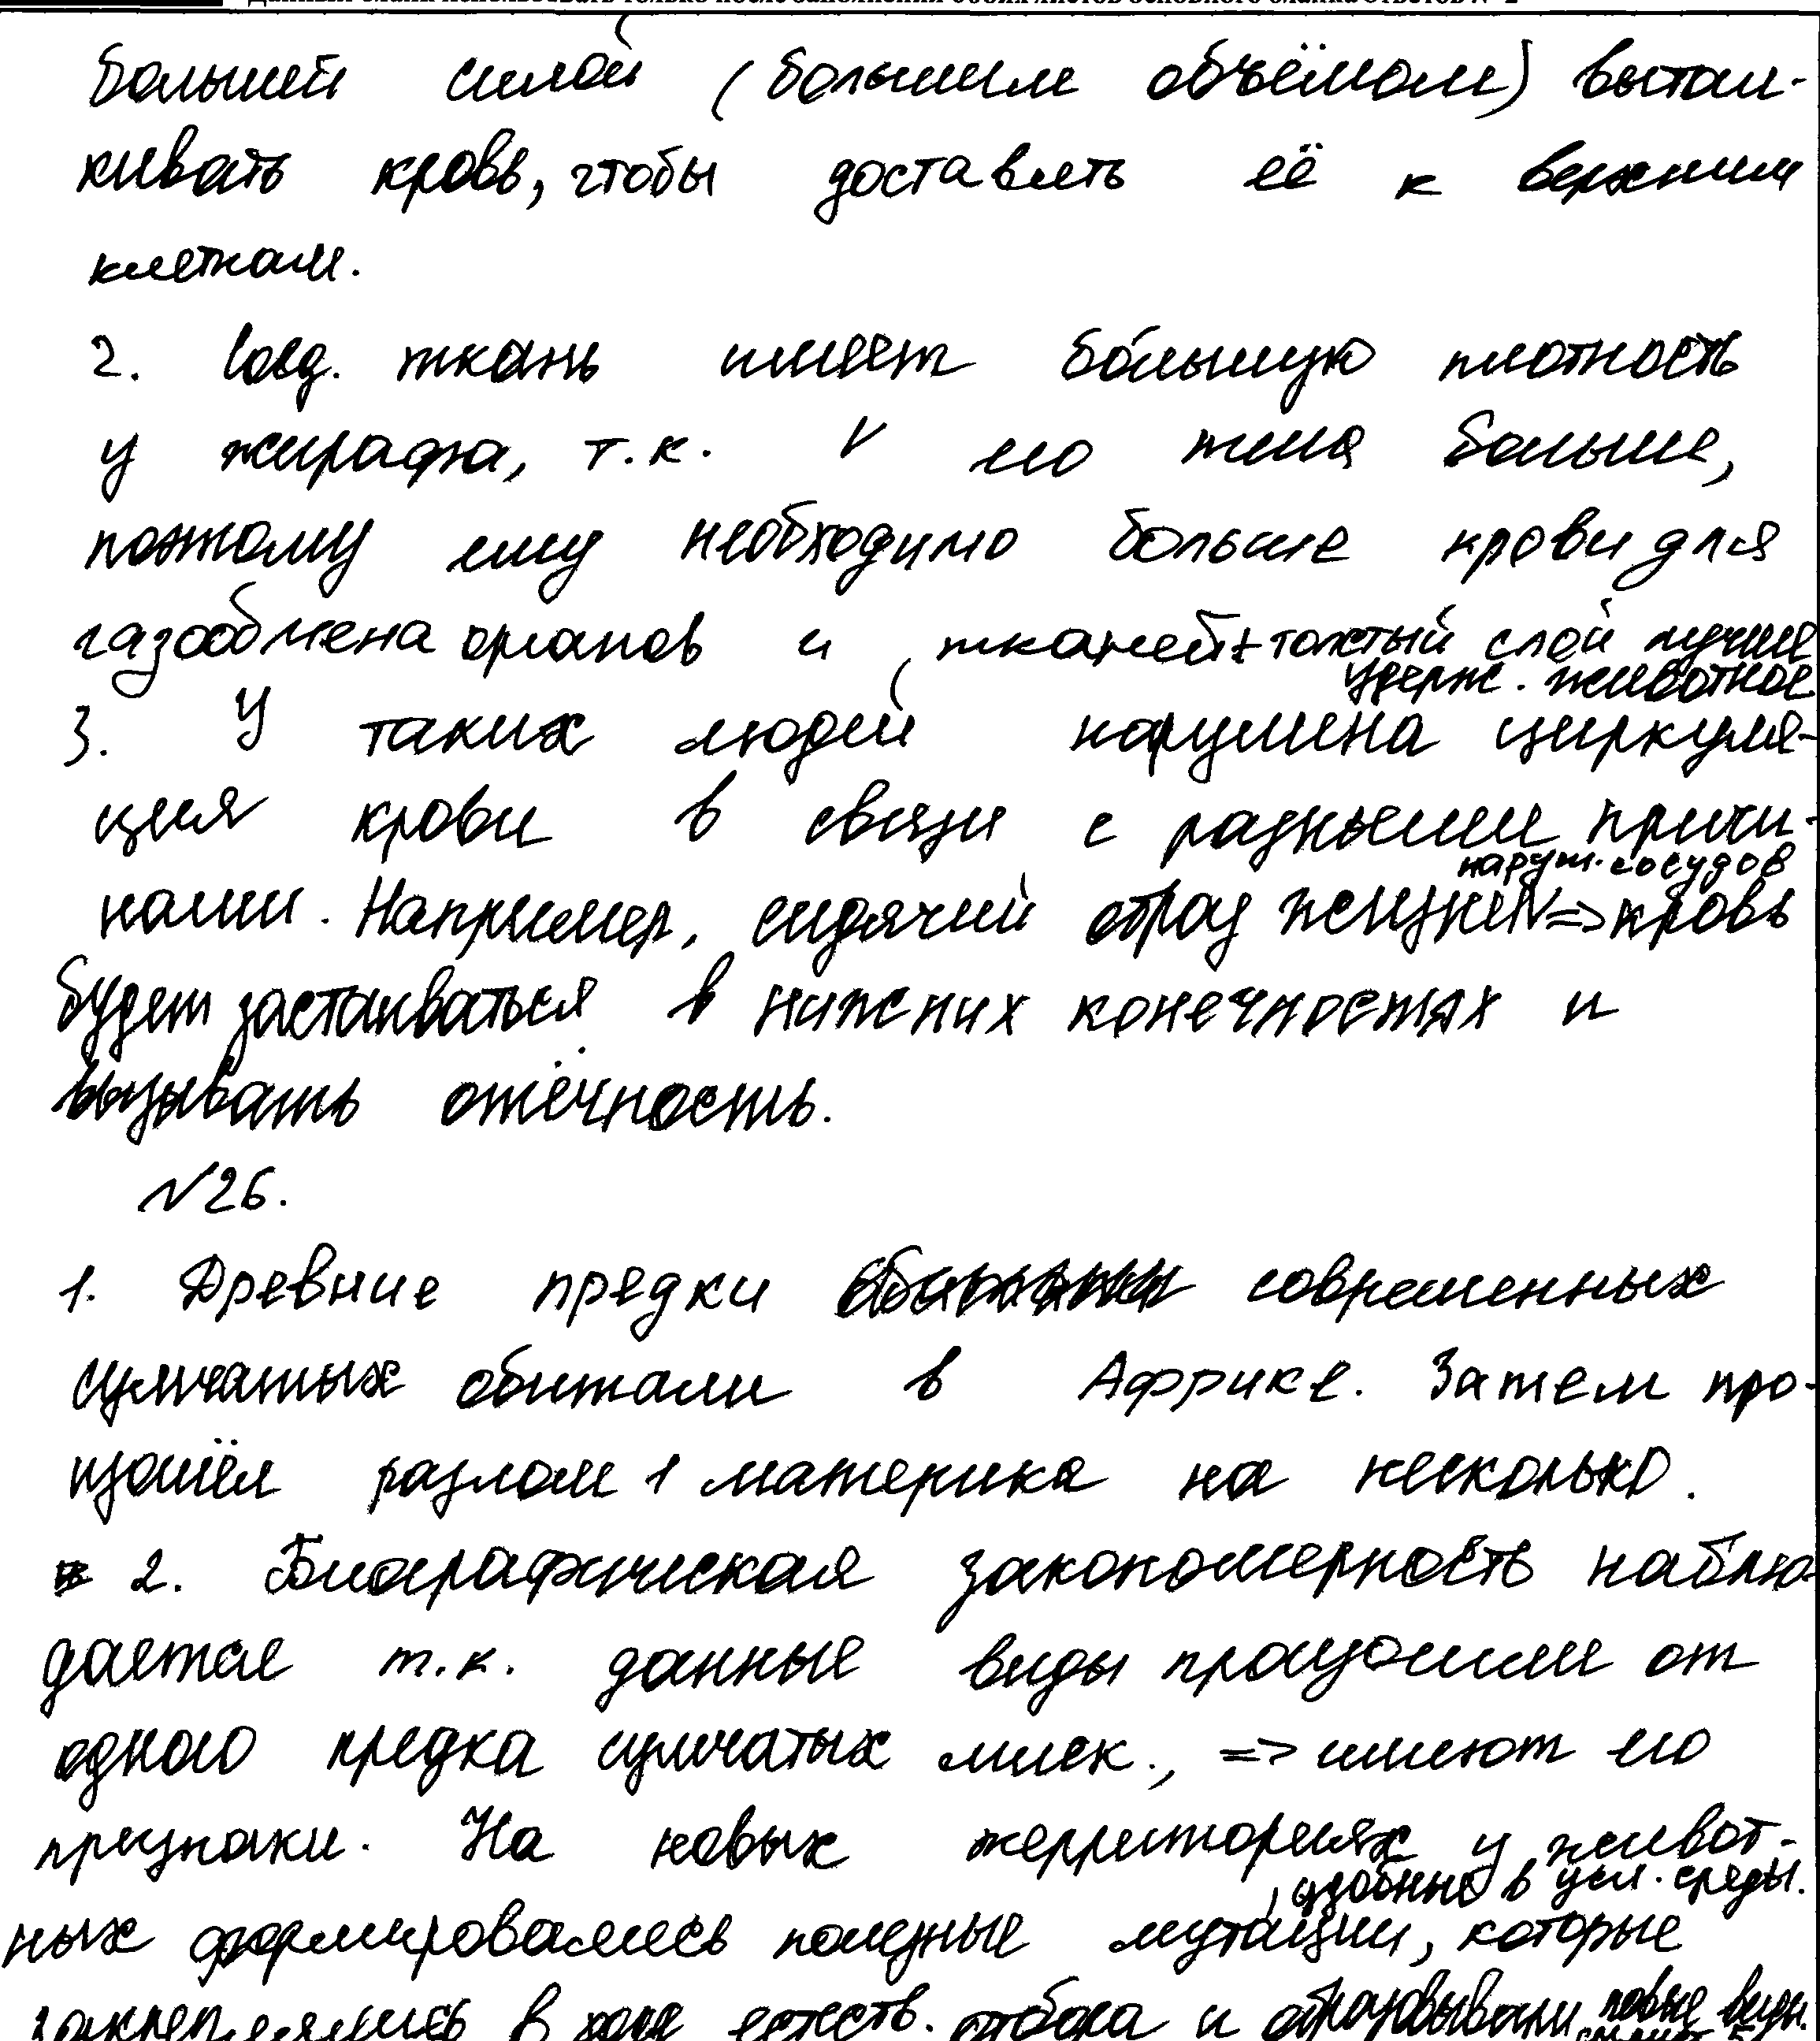 Данный бланк использовать только после заполнения обоих листов основного бланка ответов № 2
большей силой (большим объёмом) вытал-
кивать кровь, чтобы доставлять её к верхним
клеткам.
2. Соед. ткань имеет бо́льшую плотность
у жирафа, т.к. V его тела больше,
поэтому ему необходимо больше крови для
газообмена органов и тканей + толстый слой лучше
удерж. животное
3. У таких людей нарушена циркуля-
ция крови в связи с разными причи-
наруж. сосудов
нами. Например, сидячий образ жизни => кровь
будет застаиваться в нижних конечностях и
вызывать отёчность.
№26.
1. Древние предки современных
сумчатых обитали в Африке. Затем про-
изошёл разлом 1 материка на несколько.
2. Биографическая закономерность наблю-
дается т.к. данные виды произошли от
одного предка сумчатых млек., => имеют его
признаки. На новых территориях у живот-
, удобные в усл. среды.
ных формировались полезные мутации, которые
закреплялись в ходе естеств. отбора и образовывали новые виды.